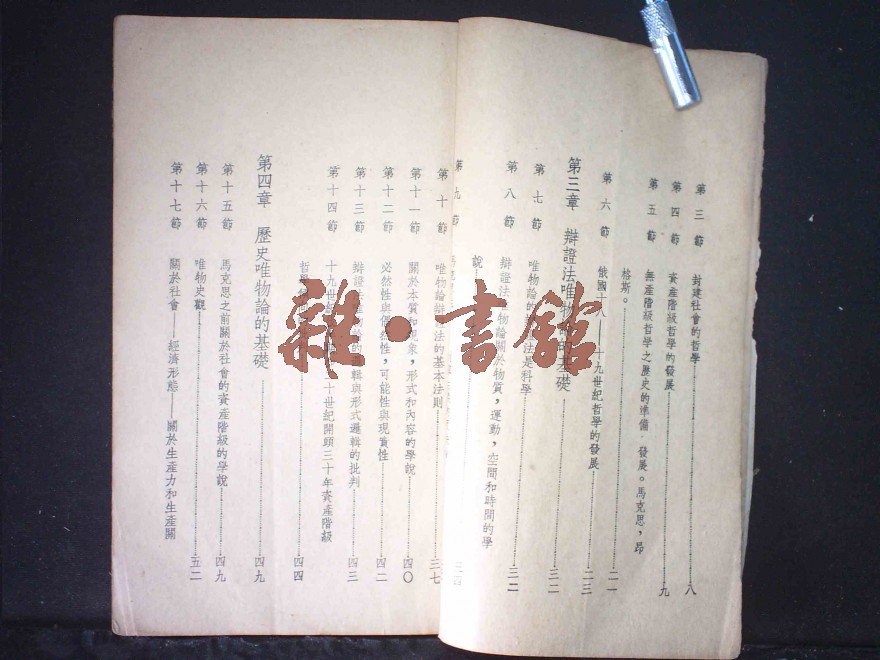 第三節 封建社會的哲學 八
第四節 資產階級哲學的發展 九
第五節 無產階級哲學之歷史的準備 發展。馬克思，昂
格斯。 二一
第六節 俄國十八——十九世紀哲學的發展 二三
第三章 辯證法唯物論的基礎 三二
第七節 唯物論的辯證法是科學
第八節 辯證法唯物論關於物質，運動，空間和時間的學 三二
說
第九節 三四
第十節 唯物論辯證法的基本法則 三七
第十一節 關於本質和現象，形式和內容的學說 四〇
第十二節 必然性與偶然性，可能性與現實性 四二
第十三節 辯證法唯物論的邏輯與形式邏輯的批判 四三
第十四節 十九世紀 十世紀開頭三十年資產階級
哲學 四四
第四章 歷史唯物論的基礎 四九
第十五節 馬克思之前關於社會的資產階級的學說 四九
第十六節 唯物史觀 五二
第十七節 關於社會——經濟形態——關於生產力和生產關
雜·書館